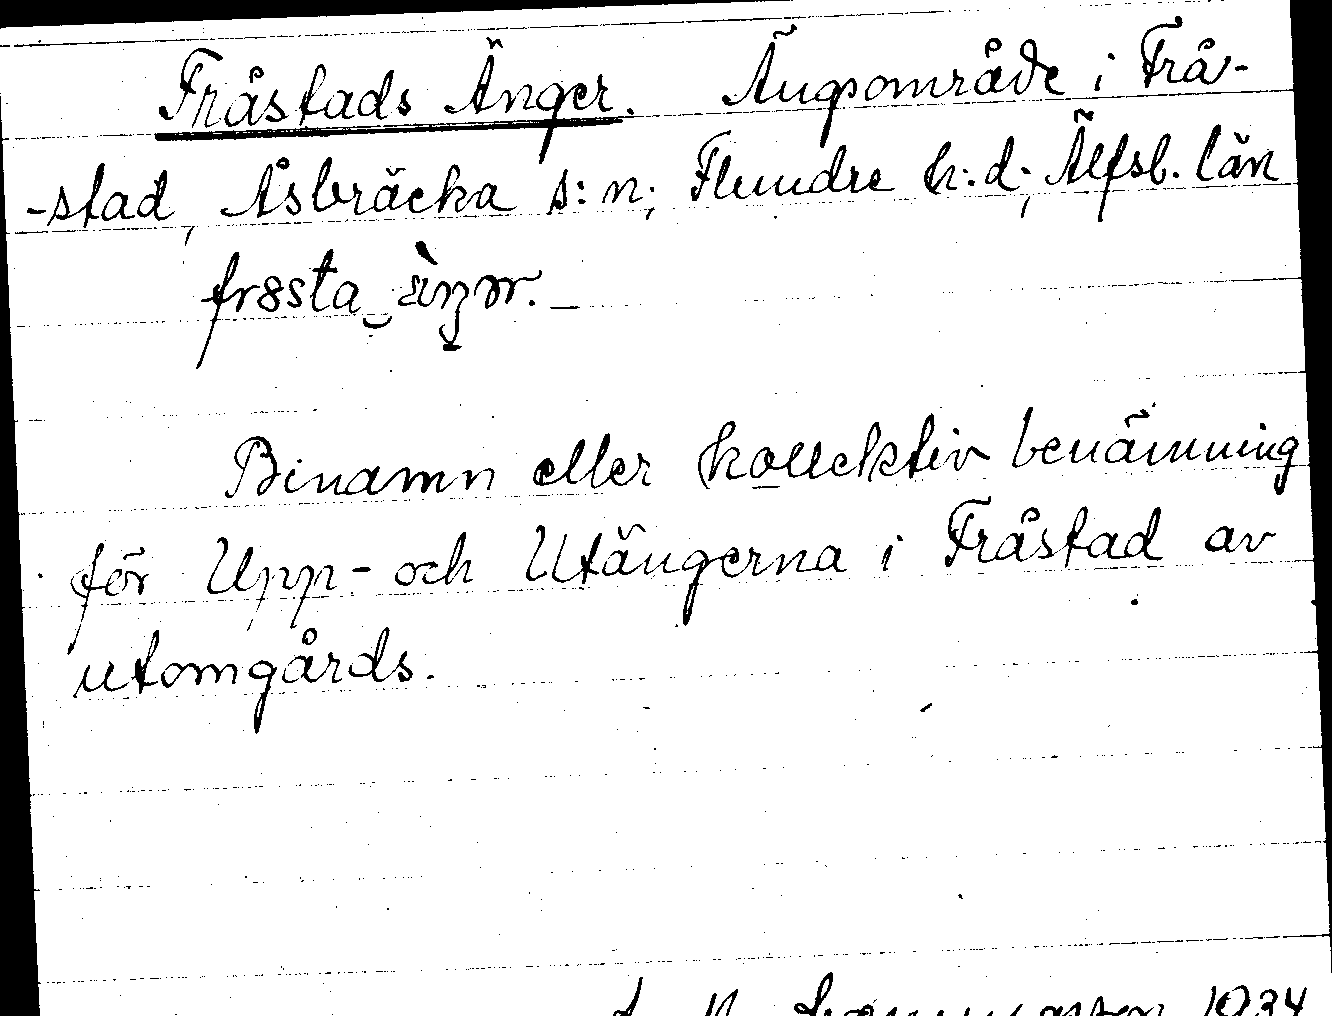 Fråstads Änger. Ängsområde i Frå-
-stad, Åsbräcka s:n, Flundre h.d., Älfsb. län
fr8sta
Binamn eller kollektiv benämning
för Upp- och Utängerna i Fråstad av
utomgårds.
1934